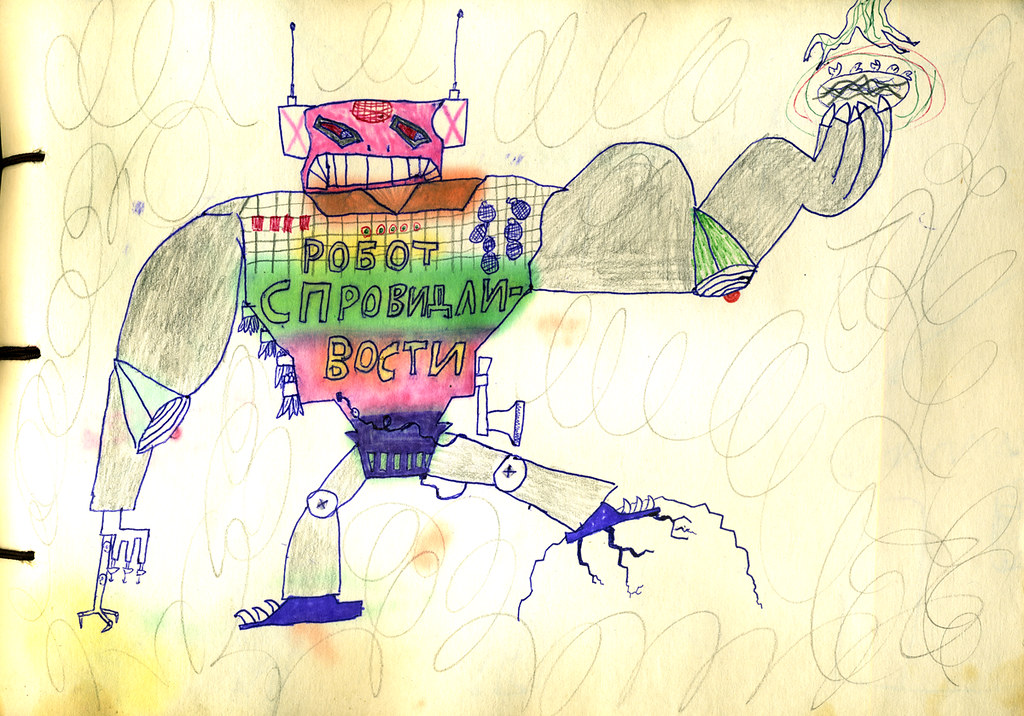 РОБОТ
СПРОВИДЛИ-
ВОСТИ